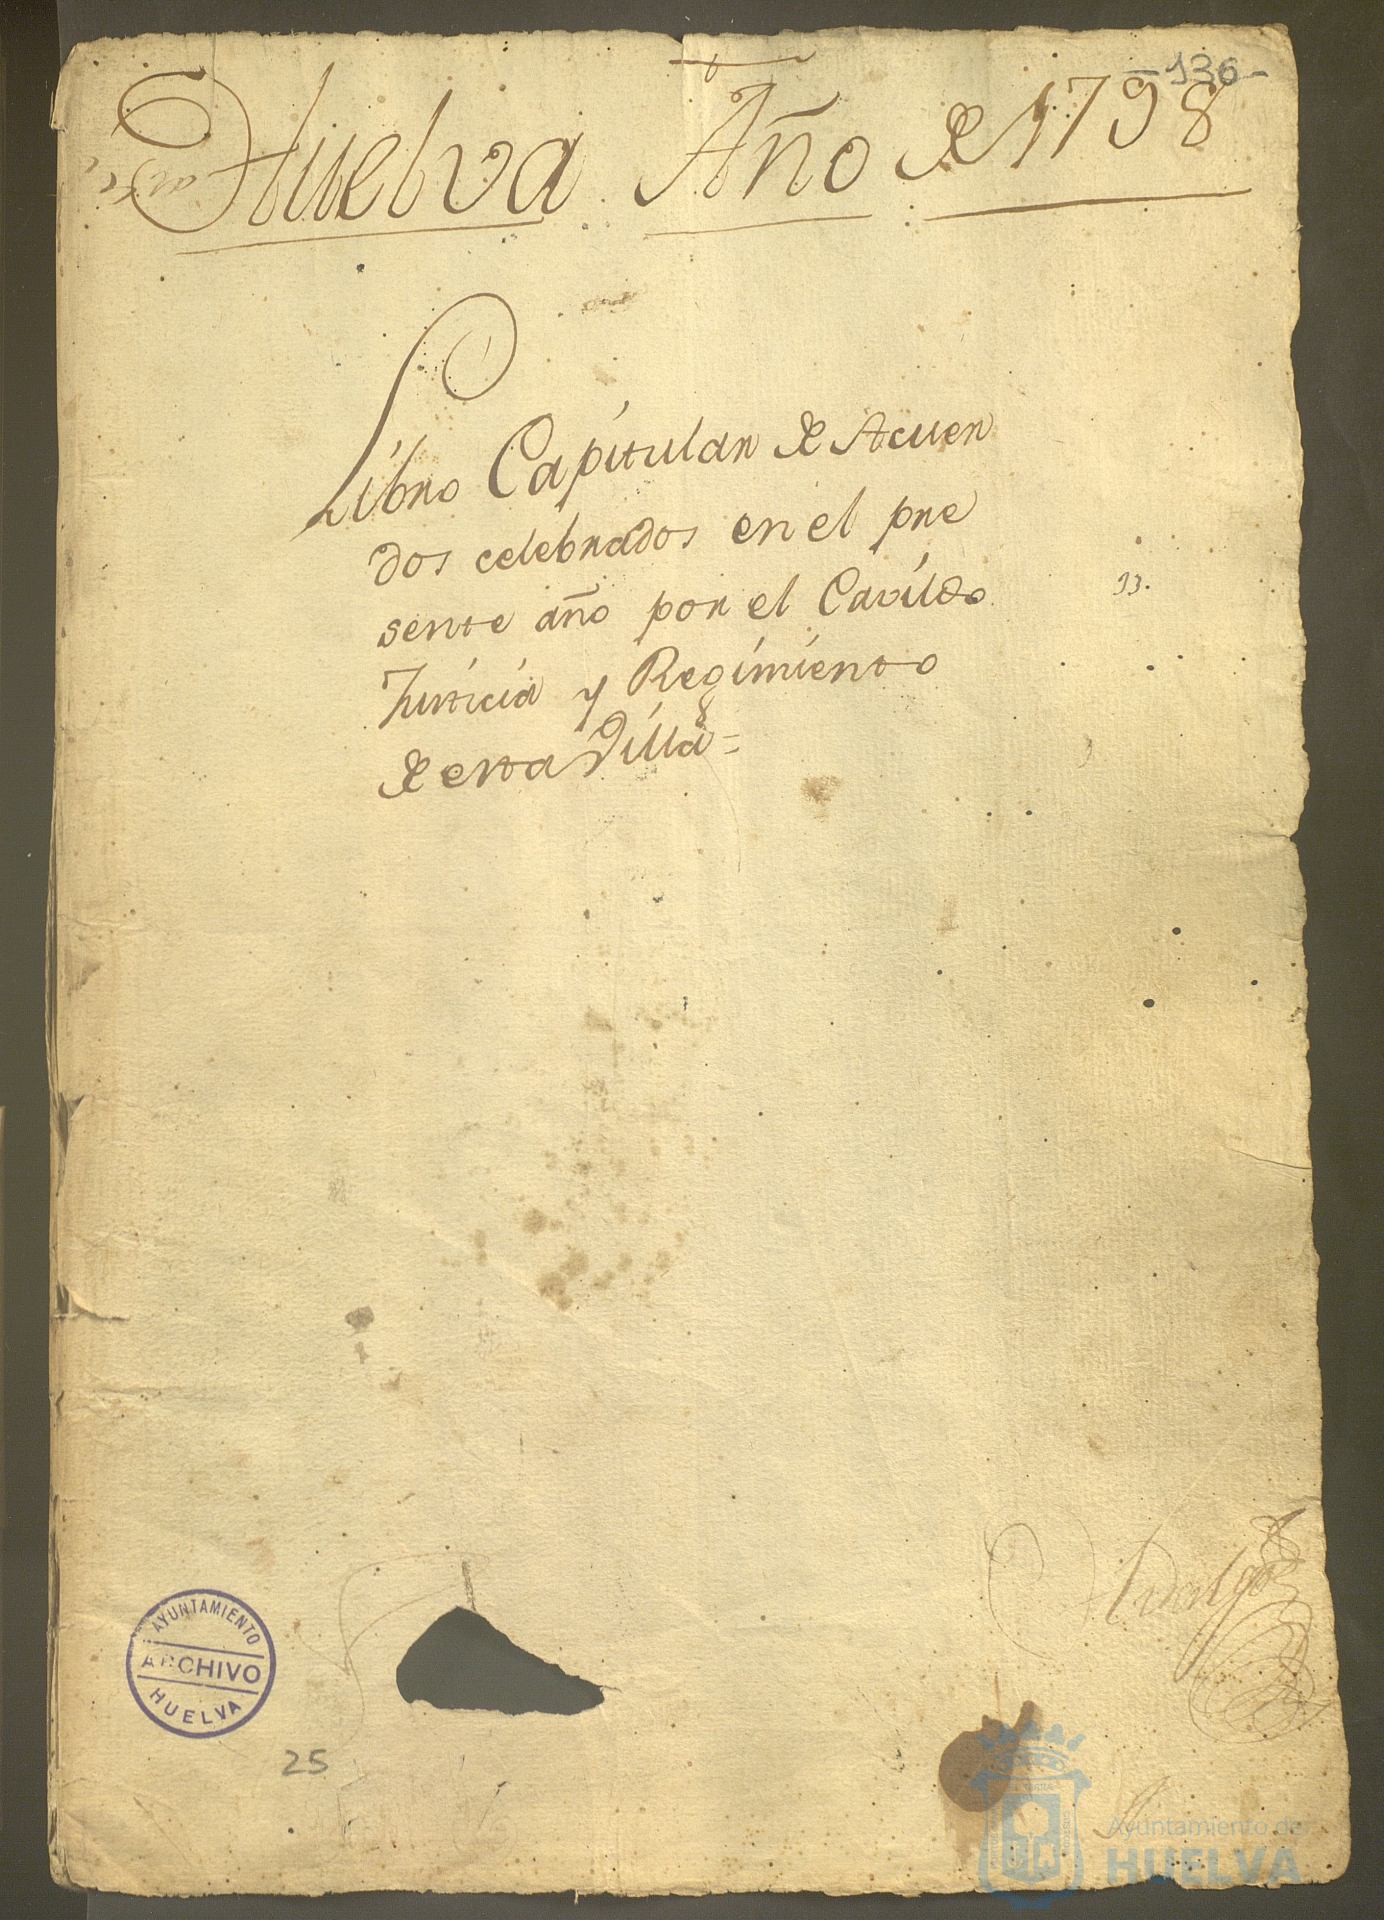 -136-
Huelva Año de 1798
Libro Capitular de Acuer
dos celebrados en el pre
sente año por el Cavildo
Justicia y Regimiento
de esta Villa=
33.
Hidalgo
AYUNTAMIENTO
ARCHIVO
HUELVA
25
Ayuntamiento de
HUELVA